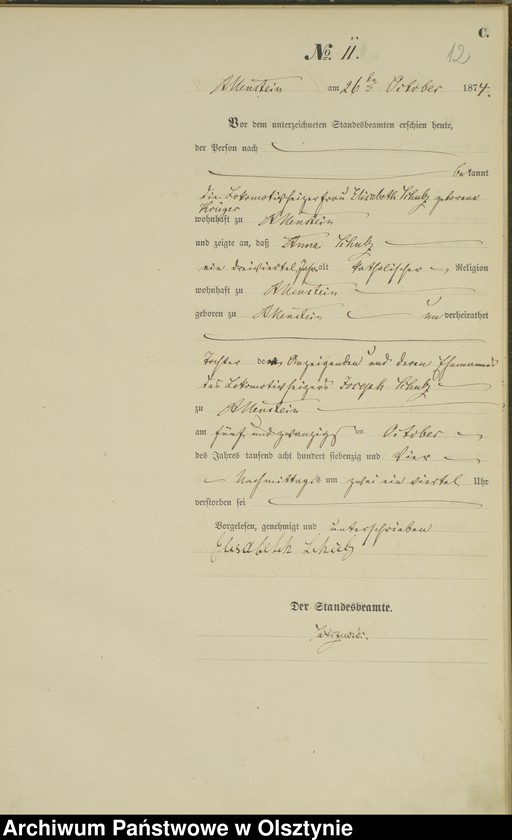 C.
12
No. 11.
Allenstein am 26ten October 1874.
Vor dem unterzeichneten Standesbeamten erschien heute,
der Person nach
bekannt
die Lokomotivheizerfrau Elisabeth Schulz geborene
Krüger
wohnhaft zu Allenstein
und zeigte an, daß Anna Schulz
ein dreiviertel Jahr alt katholischer Religion
wohnhaft zu Allenstein
geboren zu Allenstein unverheirathet
Tochter der Anzeigenden und deren Ehemannes
des Lokomotivheizers Joseph Schulz
zu Allenstein
am fünf und zwanzigsten October
des Jahres tausend acht hundert siebenzig und Vier
Nachmittags um zwei ein viertel Uhr
verstorben sei
Vorgelesen, genehmigt und unterschrieben
Elisabeth Schulz
Der Standesbeamte.
Archiwum Państwowe w Olsztynie